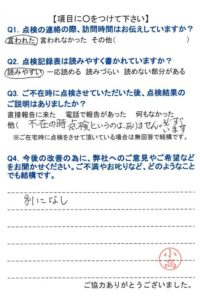 【項目に〇をつけて下さい】
Q1. 点検の連絡の際、訪問時間はお伝えしていますか?
言われた 言われなかった その他( )
Q2. 点検記録表は読みやすく書かれていますか?
読みやすい 一応読める 読みづらい 読めない部分がある
Q3. ご不在時に点検させていただいた後、点検結果の
ご説明はありましたか?
直接報告に来た 電話で報告があった 何もなかった
他( 不在の時点検というのは、ありません。必ず
います )
※ご在宅時に点検をさせて頂いている場合は無回答で結構です。
Q4. 今後の改善の為に、弊社へのご意見やご希望など
をお聞かせください。ご不満やお叱りなど、どのようなこと
でも結構です。
別になし
小高
ご協力ありがとうございました。